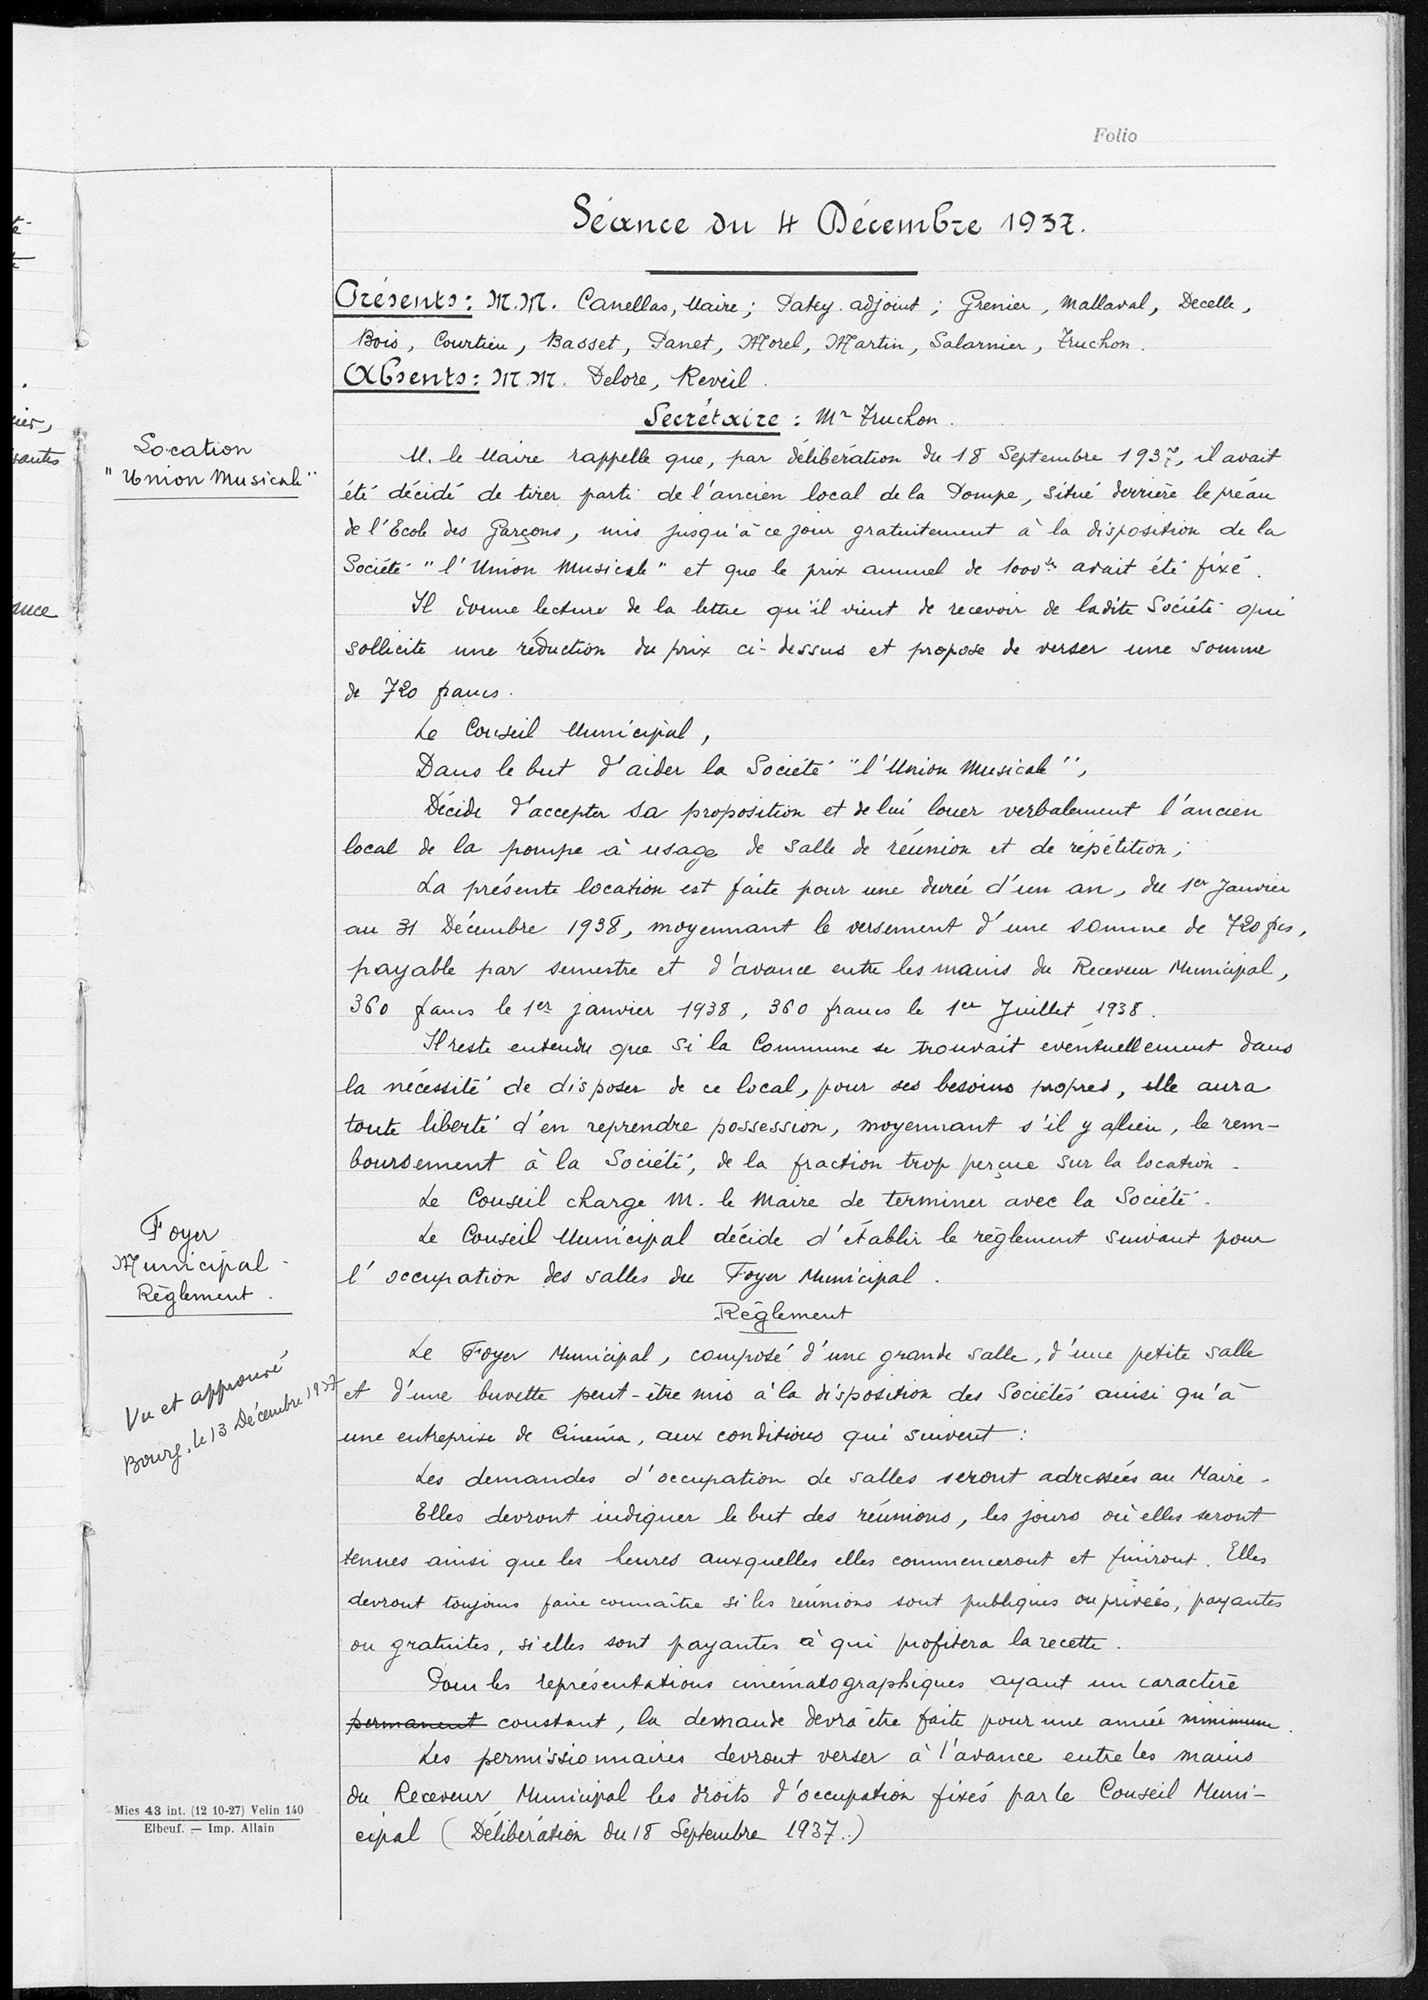 Folio
Séance du 4 Décembre 1937.
Présents : M.M. Canellas, Maire ; Patey adjoint ; Grenier, Mallaval, Decelle,
Bois, Courtieu, Basset, Panet, Morel, Martin, Salarnier, Truchon.
Absents : M.M. Delore, Reveil.
Secrétaire : Mr Truchon.
Location
"Union Musicale"
M. le Maire rappelle que, par délibération du 18 Septembre 1937, il avait
été décidé de tirer parti de l'ancien local de la Pompe, situé derrière le préau
de l'Ecole des Garçons, mis jusqu'à ce jour gratuitement à la disposition de la
Société "l'Union Musicale" et que le prix annuel de 1000 frs avait été fixé.
Il donne lecture de la lettre qu'il vient de recevoir de ladite Société qui
sollicite une réduction du prix ci-dessus et propose de verser une somme
de 720 francs.
Le Conseil Municipal,
Dans le but d'aider la Société "l'Union Musicale",
Décide d'accepter sa proposition et de lui louer verbalement l'ancien
local de la pompe à usage de salle de réunion et de répétition ;
La présente location est faite pour une durée d'un an, du 1er Janvier
au 31 Décembre 1938, moyennant le versement d'une somme de 720 frs,
payable par semestre et d'avance entre les mains du Receveur Municipal,
360 francs le 1er janvier 1938, 360 francs le 1er Juillet 1938.
Il reste entendu que si la Commune se trouvait éventuellement dans
la nécessité de disposer de ce local, pour ses besoins propres, elle aura
toute liberté d'en reprendre possession, moyennant s'il y a lieu, le rem-
boursement à la Société, de la fraction trop perçue sur la location.
Le Conseil charge M. le Maire de terminer avec la Société.
Foyer
Municipal -
Règlement.
Le Conseil Municipal décide d'établir le règlement suivant pour
l'occupation des salles du Foyer Municipal.
Règlement
Vu et approuvé
Bourg, le 13 Décembre 1937
Le Foyer Municipal, composé d'une grande salle, d'une petite salle
et d'une buvette peut-être mis à la disposition des Sociétés ainsi qu'à
une entreprise de Cinéma, aux conditions qui suivent :
Les demandes d'occupation de salles seront adressées au Maire.
Elles devront indiquer le but des réunions, les jours où elles seront
tenues ainsi que les heures auxquelles elles commenceront et finiront. Elles
devront toujours faire connaître si les réunions sont publiques ou privées, payantes
ou gratuites, si elles sont payantes à qui profitera la recette.
Pour les représentations cinématographiques ayant un caractère
permanent constant, la demande devra être faite pour une année minimum.
Les permissionnaires devront verser à l'avance entre les mains
du Receveur Municipal les droits d'occupation fixés par le Conseil Muni-
cipal (Délibération du 18 Septembre 1937.)
Mies 43 int. (12 10-27) Velin 140
Elbeuf. — Imp. Allain